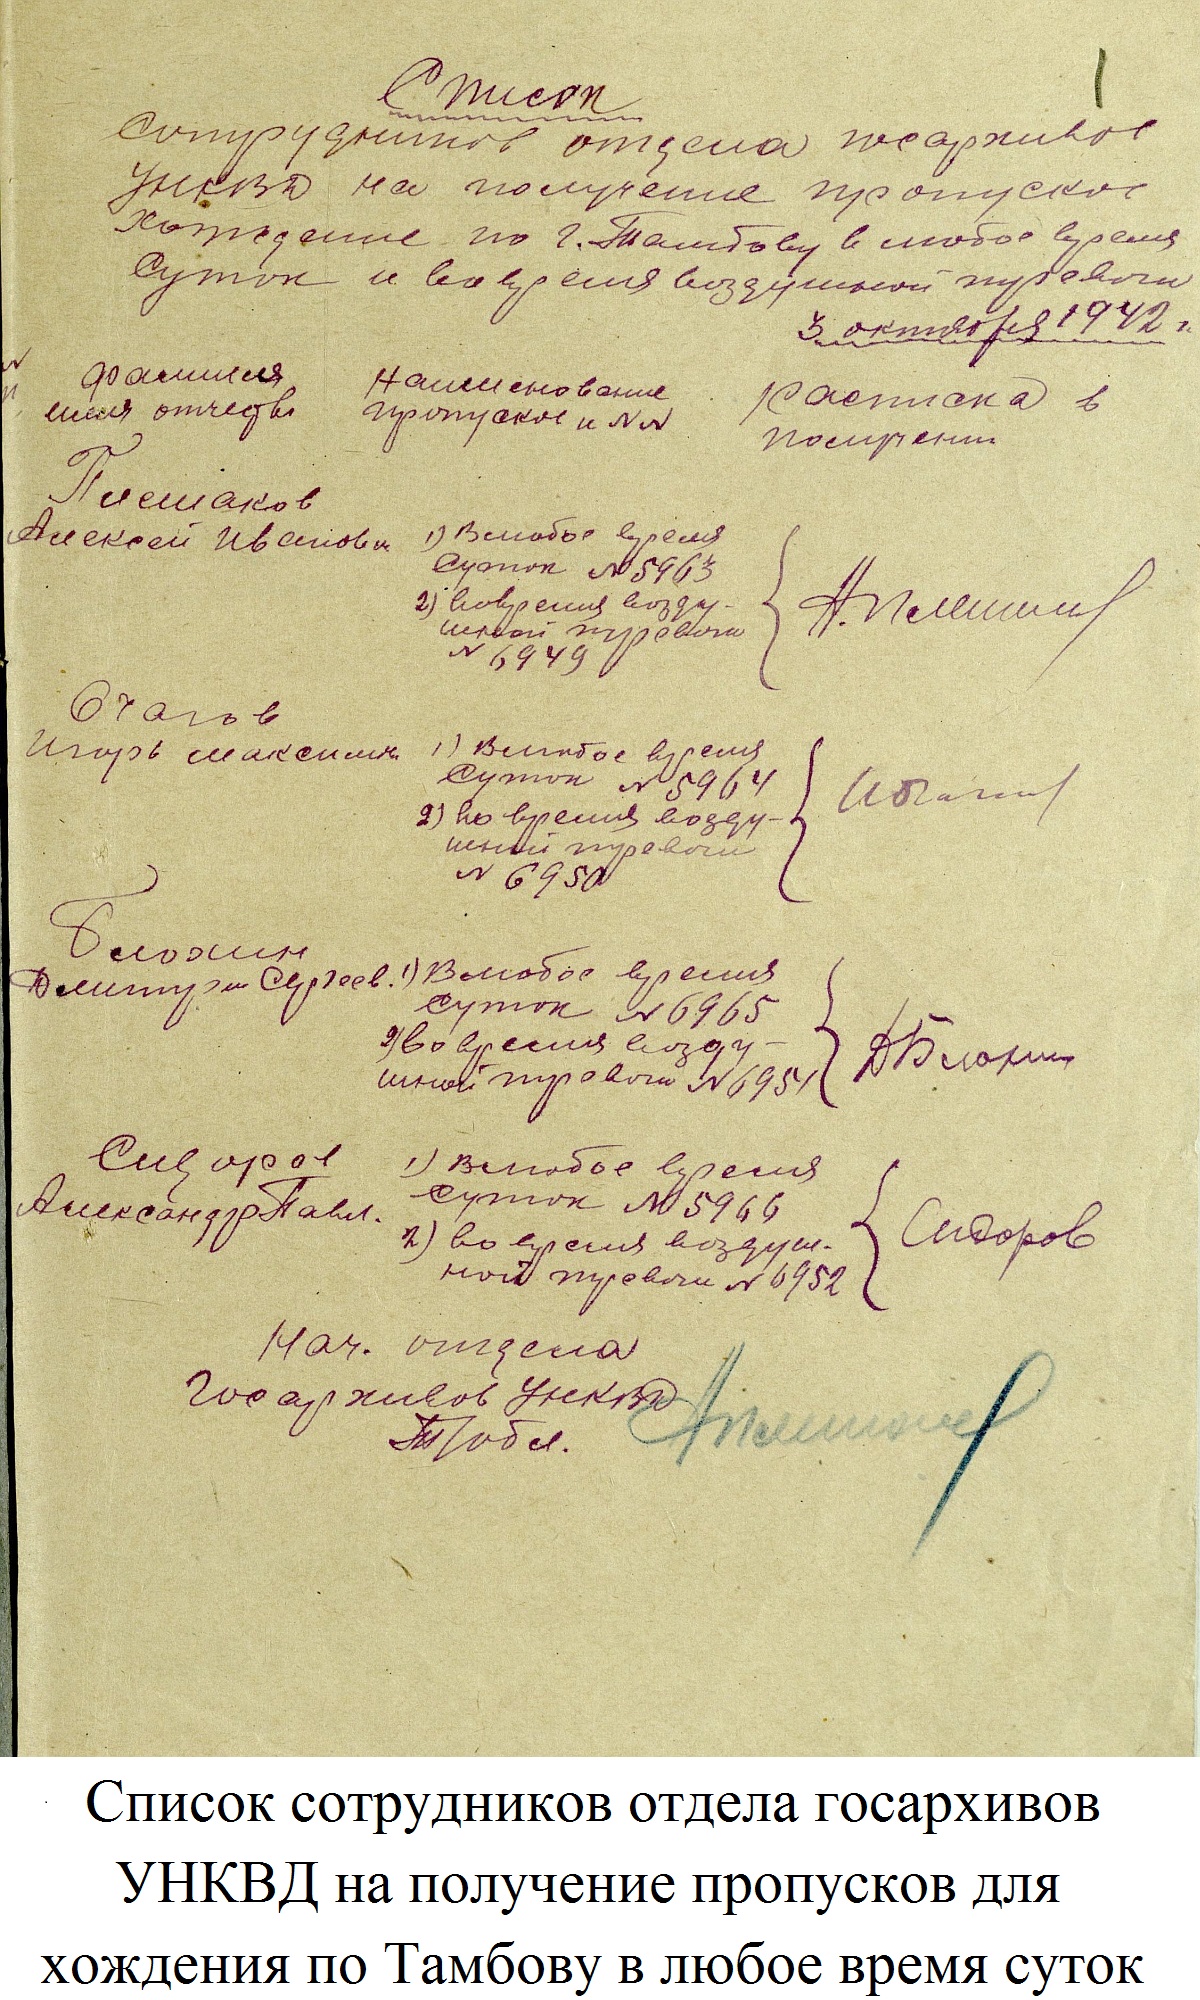 1
Список
сотрудников отдела госархивов
УНКВД на получение пропусков
хождение по г. Тамбову в любое время
суток и во время воздушной тревоги
3 октября 1942 г.
Фамилия
имя отчество
Наименование
пропусков и №№
Расписка в
получении
Плешаков
Алексей Иванович
1) В любое время
суток № 5963
2) во время возду-
шной тревоги
№ 6949
А. Плешаков
Очагов
Игорь Максим.
1) В любое время
суток № 5964
2) во время возду-
шной тревоги
№ 6950
Блохин
Дмитрий Сергеев.
1) В любое время
суток № 6965
2) во время возду-
шной тревоги № 6951
Д Блохин
Сидоров
Александр Павл.
1) В любое время
суток № 5966
2) во время воздуш-
ной тревоги № 6952
Сидоров
Нач. отдела
Госархивов УНКВД
Т/обл.
А Плешаков
Список сотрудников отдела госархивов
УНКВД на получение пропусков для
хождения по Тамбову в любое время суток